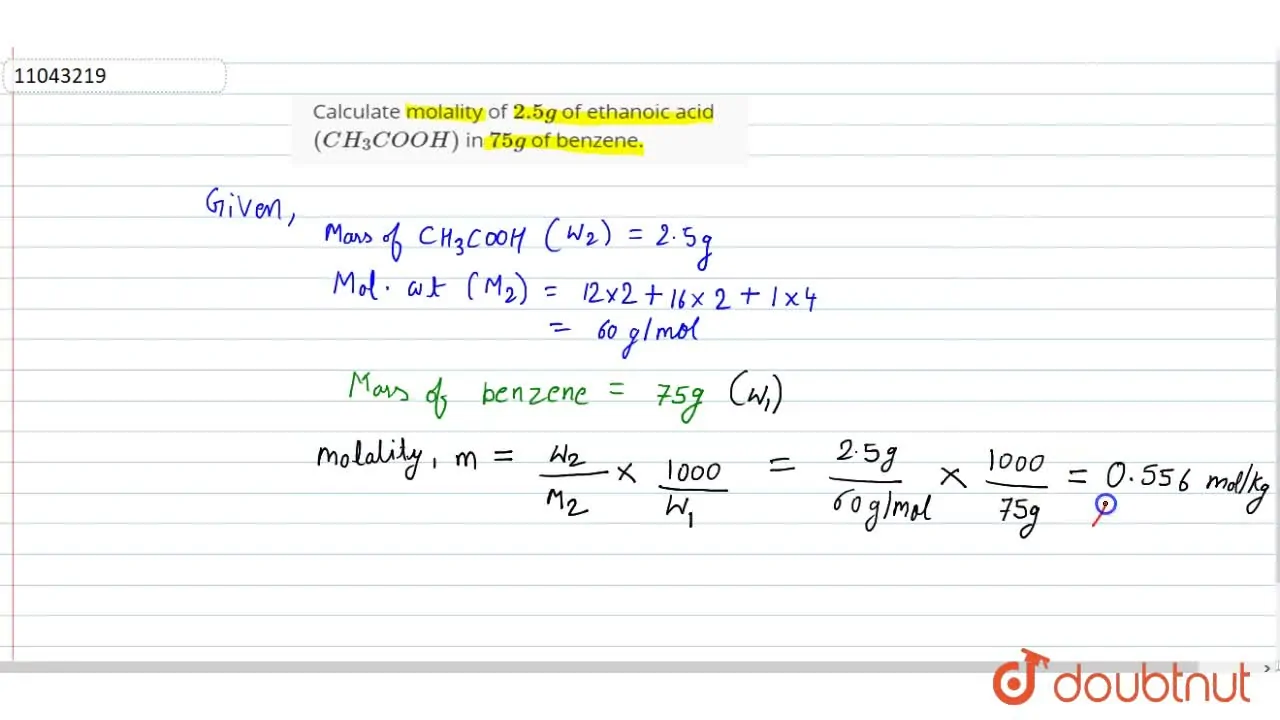 11043219
Calculate molality of 2.5g of ethanoic acid
(CH₃COOH) in 75g of benzene.
Given,
Mass of CH₃COOH (W₂) = 2.5g
Mol. wt (M₂) = 12×2 + 16×2 + 1×4
= 60 g/mol
Mass of benzene = 75g (W₁)
molality, m = W₂/M₂ × 1000/W₁ = 2.5g/60g/mol × 1000/75g = 0.556 mol/kg
doubtnut